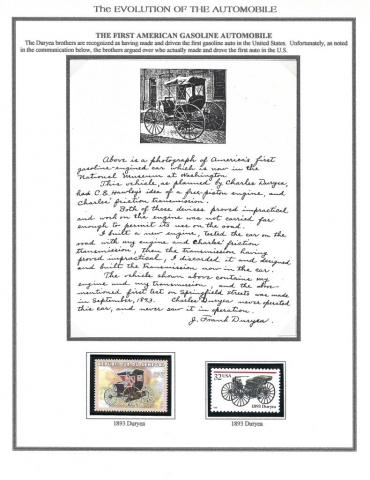 The EVOLUTION OF THE AUTOMOBILE
THE FIRST AMERICAN GASOLINE AUTOMOBILE
The Duryea brothers are recognized as having made and driven the first gasoline auto in the United States. Unfortunately, as noted
in the communication below, the brothers argued over who actually made and drove the first auto in the U.S.
Above is a photograph of America's first
gasoline-engined car which is now in the
National Museum at Washington
This vehicle, as planned by Charles Duryea,
had C.E. Hawley's idea of a free-piston engine, and
Charles' friction transmission.
Both of these devices proved impractical
and work on the engine was not carried far
enough to permit its use on the road.
I built a new engine, tested the car on the
road with my engine and Charles' friction
transmission, then the transmission having
proved impractical, I discarded it and designed
and built the transmission now in the car.
The vehicle shown above contains my
engine and my transmission, and the above
mentioned first test on Springfield streets was made
in September, 1893. Charles Duryea never operated
this car, and never saw it in operation.
J. Frank Duryea.
32 USA
1893 Duryea
1893 Duryea
1893 Duryea